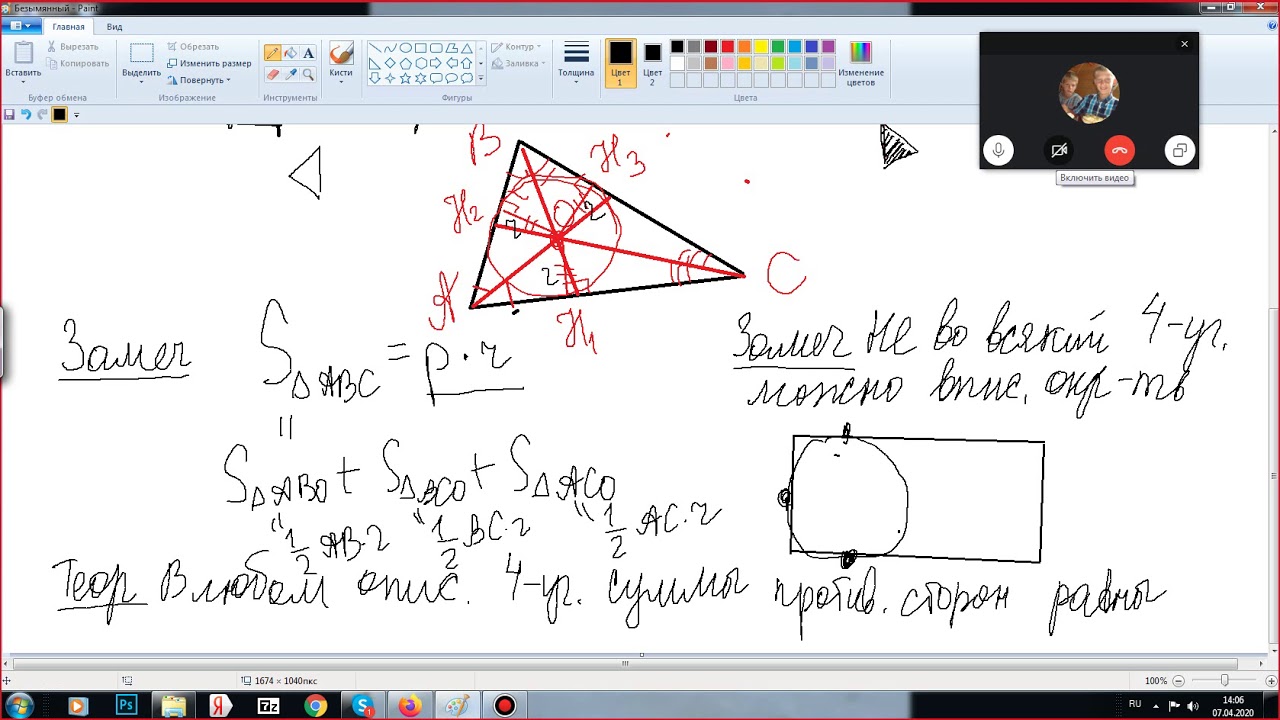 Безымянный - Paint
Главная
Вид
Вставить
Вырезать
Копировать
Буфер обмена
Выделить
Обрезать
Изменить размер
Повернуть
Изображение
A
Инструменты
Кисти
Контур
Заливка
Фигуры
Толщина
Цвет 1
Цвет 2
Изменение цветов
Цвета
Включить видео
B
H3
H2
O
r
r
r
C
A
H1
Замеч
S△ABC = p·r
"
S△ABO + S△BCO + S△ACO
" 1/2 AB·r " 1/2 BC·r " 1/2 AC·r
Замеч Не во всякий 4-уг.
можно впис. окр-ть
Теор В любом опис. 4-уг. суммы против. сторон равны
1674 × 1040пкс
100%
Ps
Я
7z
S
1
RU
14:06
07.04.2020